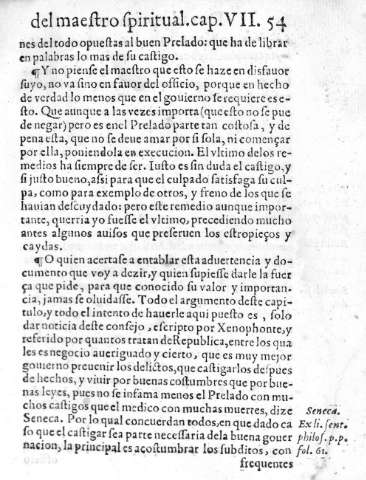 del maestro spiritual.cap.VII. 54
nes del todo opuestas al buen Prelado: que ha de librar
en palabras lo mas de su castigo.
¶Y no piense el maestro que esto se haze en disfauor
suyo, no va sino en fauor del officio, porque en hecho
de verdad lo menos que en el gouierno se requiere es e-
sto. Que aunque a las vezes importa (que esto no se pue
de negar) pero es en el Prelado parte tan costosa, y de
pena esta, que no se deue amar por si sola, ni començar
por ella, poniendola en execucion. El vltimo de los re-
medios ha siempre de ser. Iusto es sin duda el castigo, y
si justo bueno, assi para que el culpado satisfaga su cul-
pa, como para exemplo de otros, y freno de los que se
hauian descuydado: pero este remedio aunque impor-
tante, querria yo fuesse el vltimo, precediendo mucho
antes algunos auisos que preseruen los estropieços y
caydas.
¶O quien acertase a entablar esta aduertencia y do-
cumento que voy a dezir, y quien supiesse darle la fuer
ça que pide, para que conocido su valor y importan-
cia, jamas se oluidasse. Todo el argumento deste capi-
tulo, y todo el intento de hauerle aqui puesto es, solo
dar noticia deste consejo, escripto por Xenophonte, y
referido por quantos tratan de Republica, entre los qua
les es negocio aueriguado y cierto, que es muy mejor
gouierno preuenir los delictos, que castigarlos despues
de hechos, y viuir por buenas costumbres que por bue-
nas leyes, pues no se infama menos el Prelado con mu-
chos castigos que el medico con muchas muertes, dize
Seneca. Por lo qual concuerdan todos, en que dado ca
so que el castigar sea parte necessaria de la buena gouer
nacion, la principal es acostumbrar los subditos, con
frequentes
Seneca.
Ex li. sent.
philos. p.p.
fol. 61.